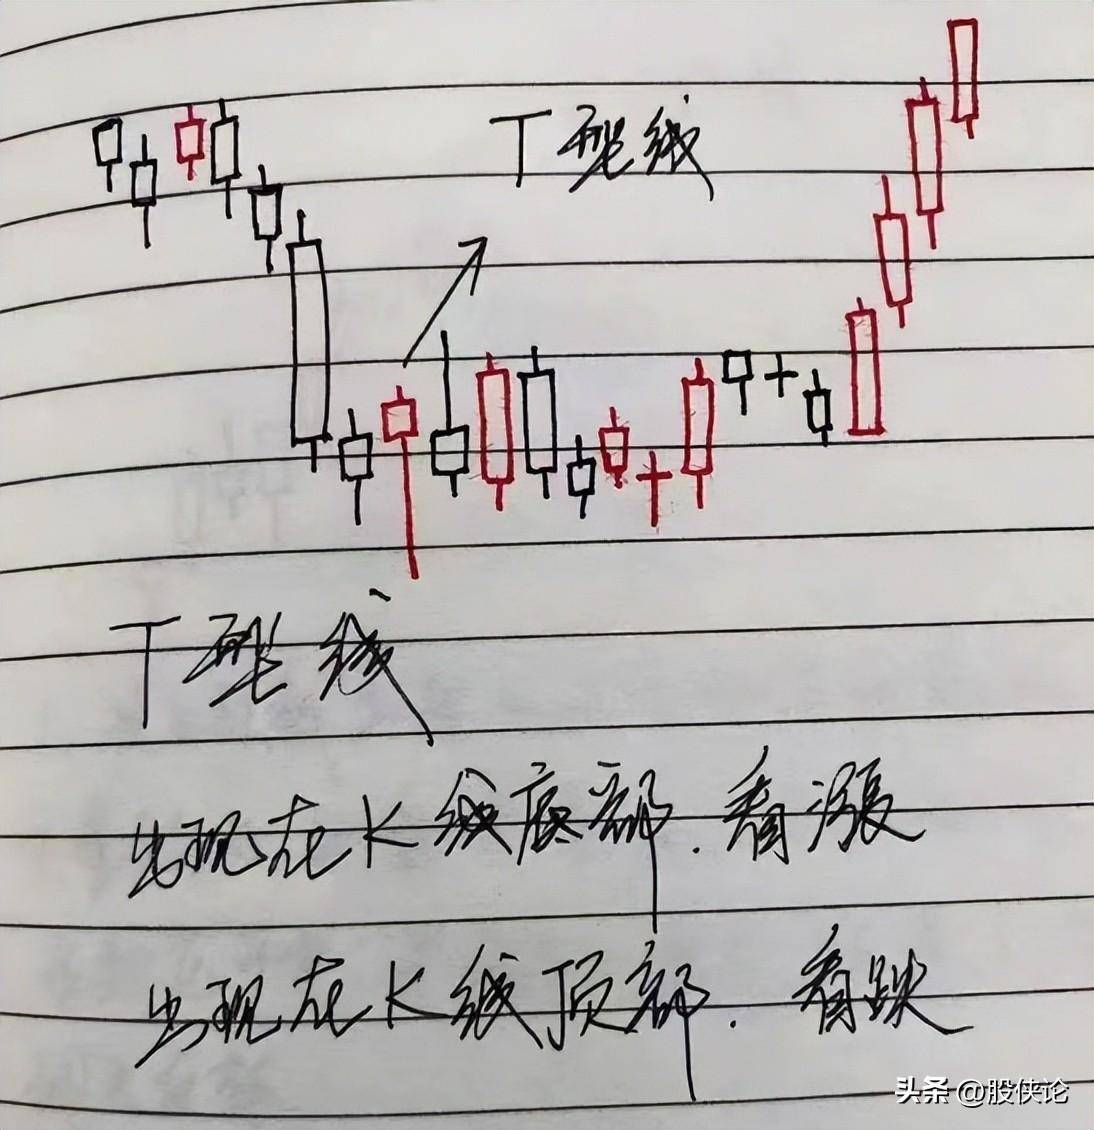 T型线
T型线
出现在K线底部.看涨
出现在K线顶部.看跌
头条 @股侠论